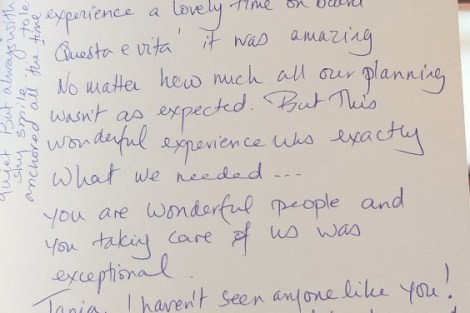 experience a lovely time on board
Questa e vita' it was amazing
No matter how much all our planning
wasn't as expected. But This
wonderful experience was exactly
what we needed ---
you are wonderful people and
you taking care of us was
exceptional.
Tania, I haven't seen anyone like you!
quiet But always with
shy smile
anchored all the time